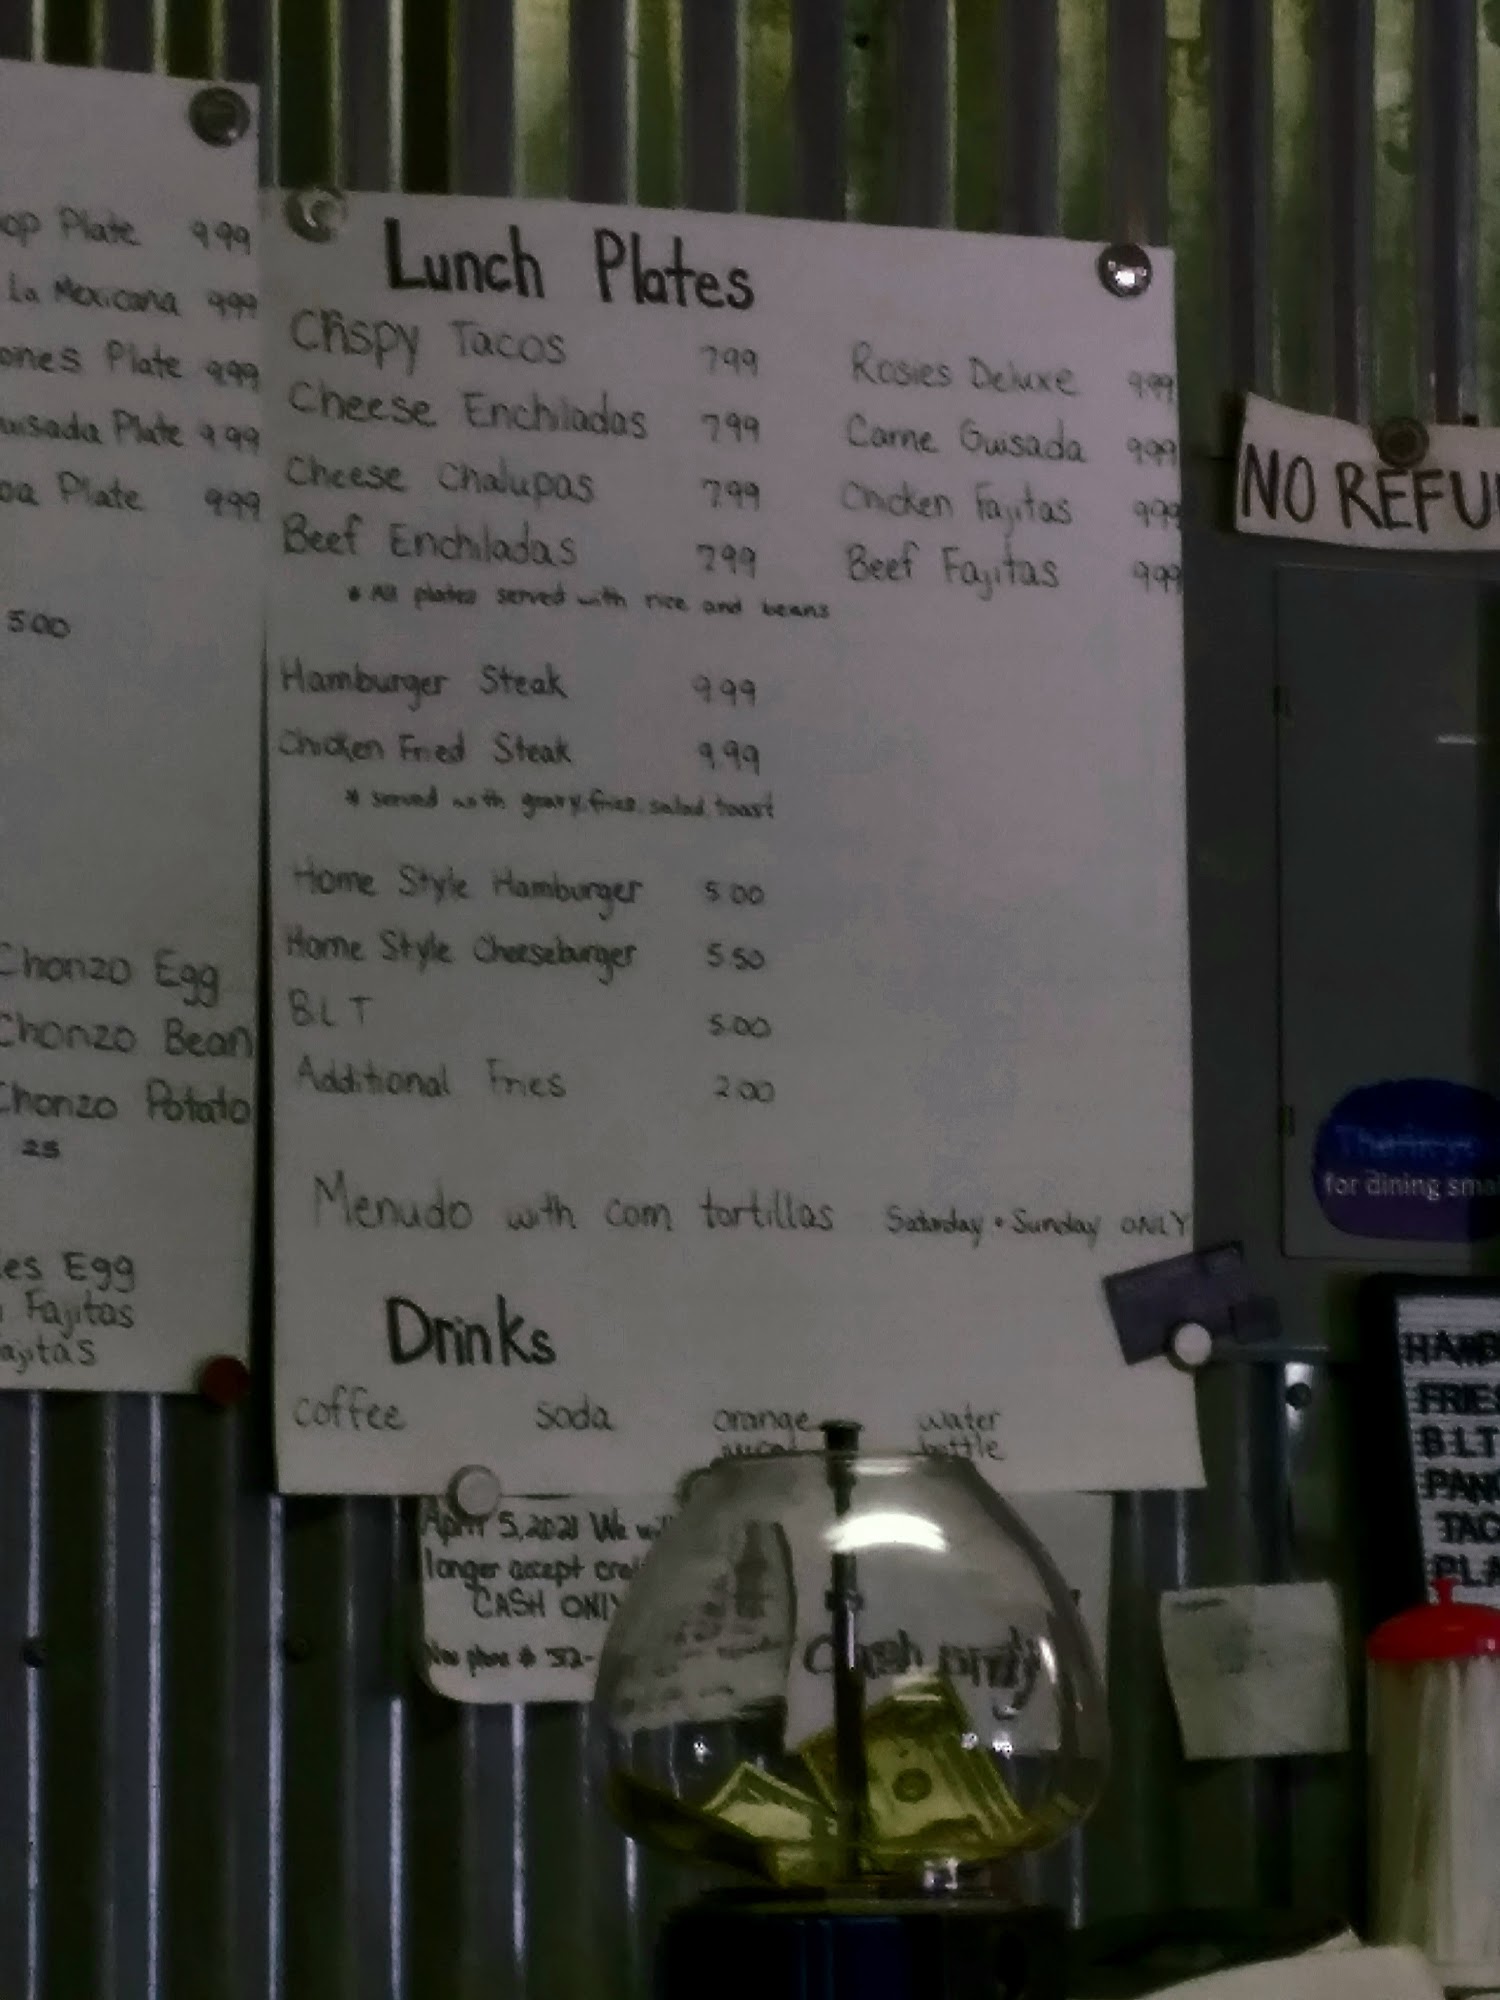 op Plate 9.99
La Mexicana 9.99
ones Plate 9.99
uisada Plate 9.99
oa Plate 9.99
5.00
Chorizo Egg
Chorizo Bean
Chorizo Potato
25
es Egg
Fajitas
ajitas
Lunch Plates
Crispy Tacos 7.99
Cheese Enchiladas 7.99
Cheese Chalupas 7.99
Beef Enchiladas 7.99
Rosies Deluxe 9.99
Carne Guisada 9.99
Chicken Fajitas 9.99
Beef Fajitas 9.99
* All plates served with rice and beans
Hamburger Steak 9.99
Chicken Fried Steak 9.99
* served with gravy, fries, salad, toast
Home Style Hamburger 5.00
Home Style Cheeseburger 5.50
B.L.T 5.00
Additional Fries 2.00
Menudo with corn tortillas Saturday • Sunday ONLY
Drinks
coffee soda orange water
bottle
April 5, 2021 We
longer accept
CASH ONLY
New phone #
Cash only
NO REFU
Thank
for dining
HAMB
FRIES
BLT
PAN
TAC
PLA